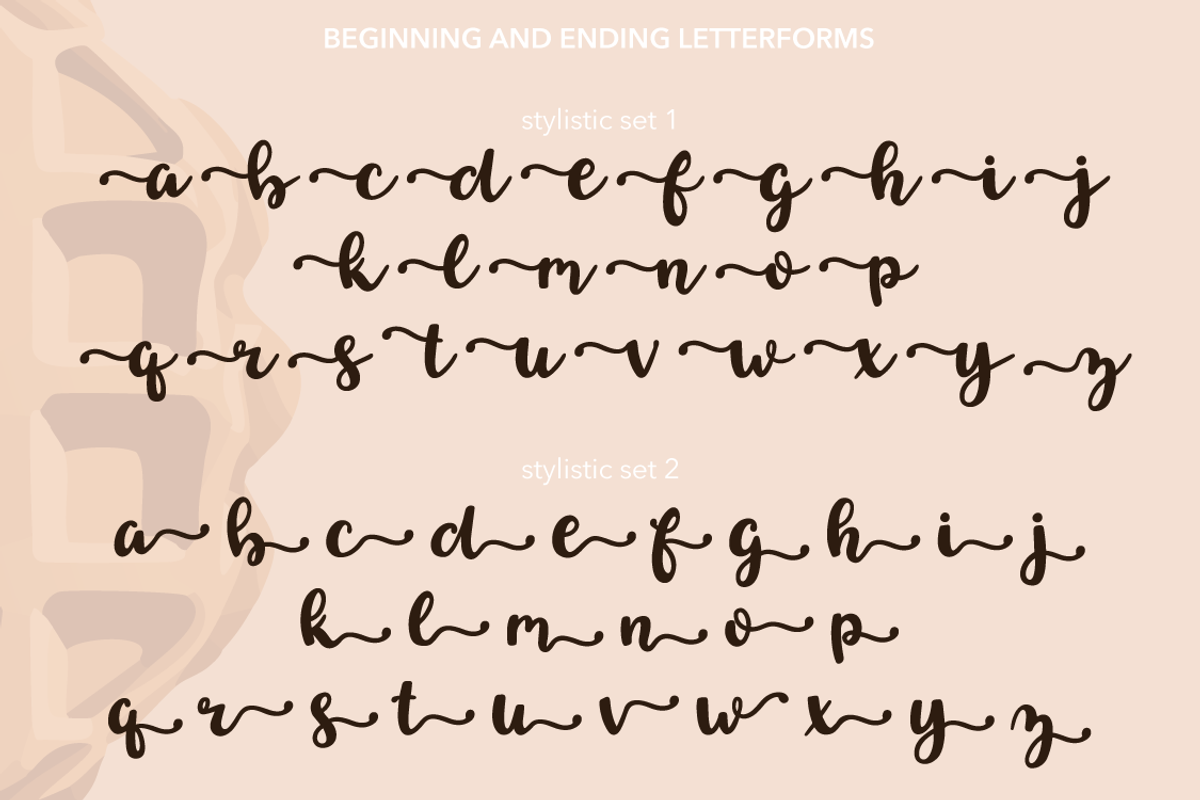 BEGINNING AND ENDING LETTERFORMS
stylistic set 1
a b c d e f g h i j
k l m n o p
q r s t u v w x y z
stylistic set 2
a b c d e f g h i j
k l m n o p
q r s t u v w x y z